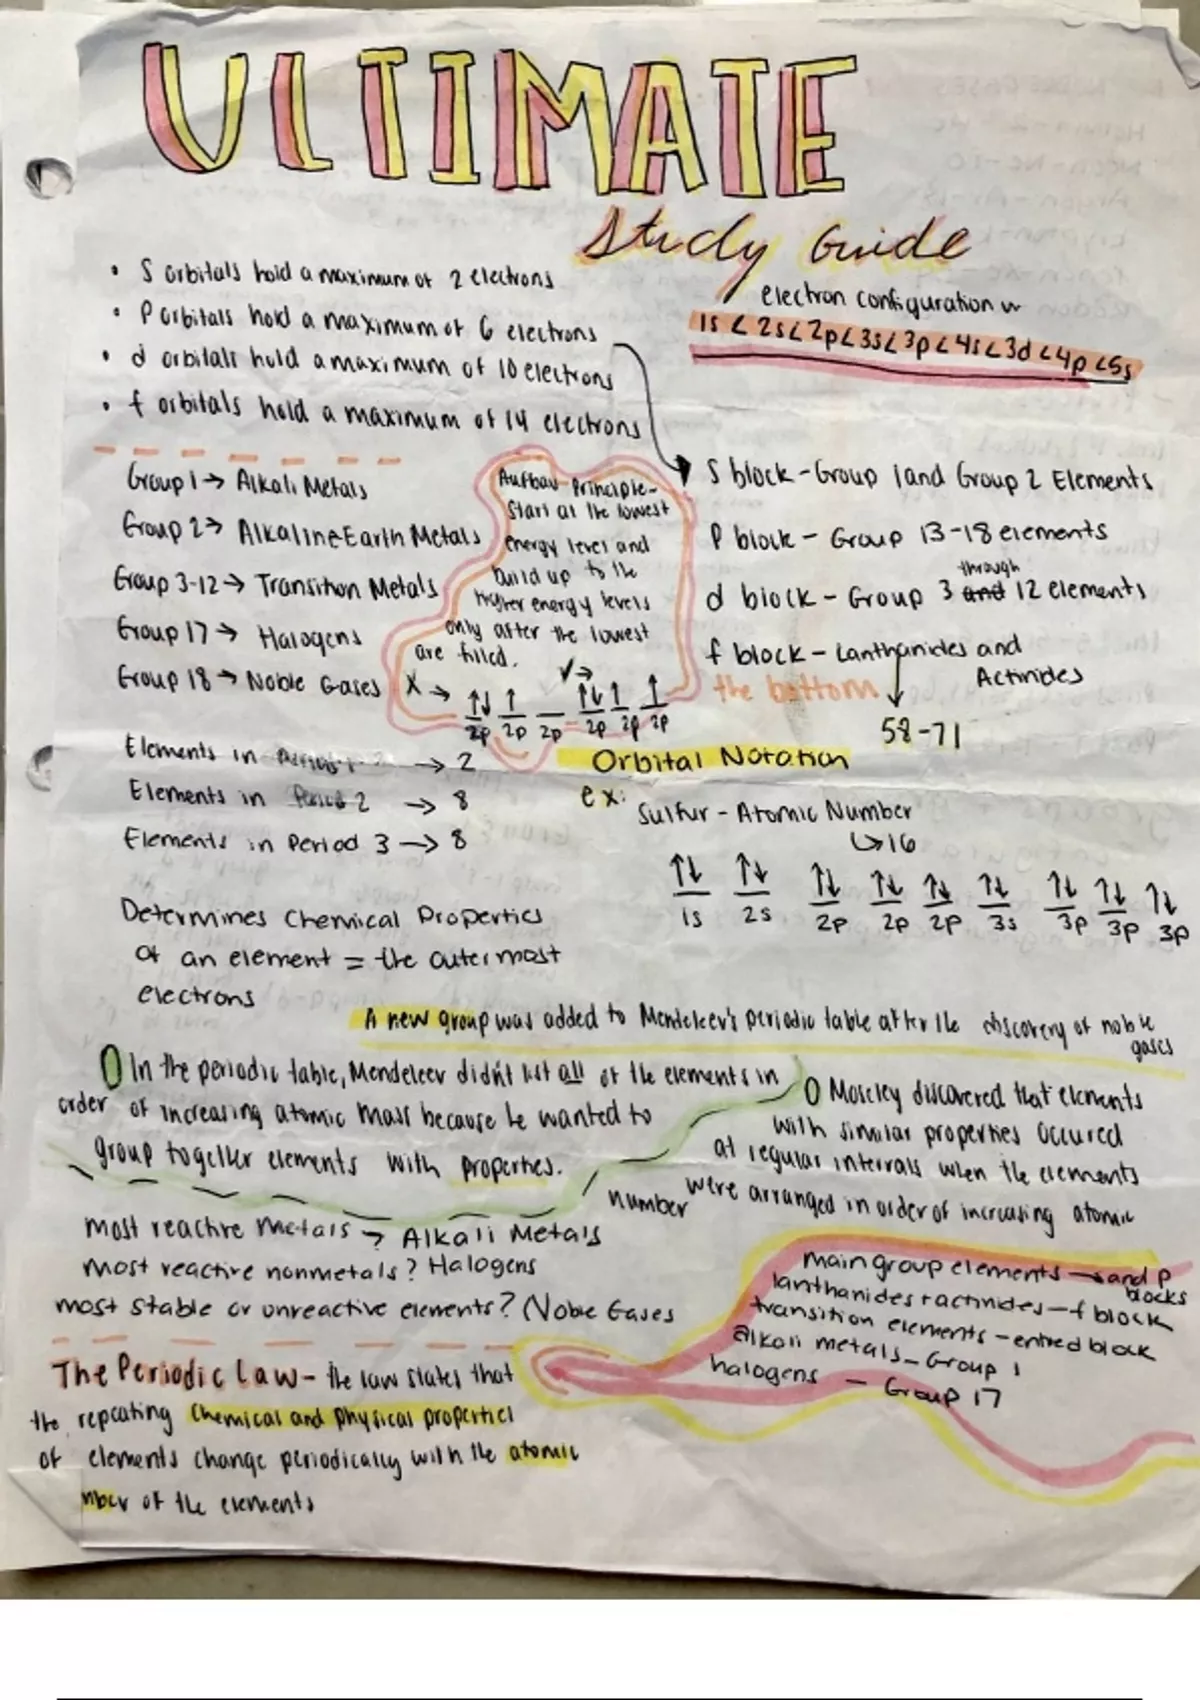 ULTIMATE
Study Guide
• S orbitals hold a maximum of 2 electrons
• P orbitals hold a maximum of 6 electrons
• d orbitals hold a maximum of 10 electrons
• f orbitals hold a maximum of 14 electrons
electron configuration
1s < 2s < 2p < 3s < 3p < 4s < 3d < 4p < 5s
Group 1 → Alkali Metals
Group 2 → Alkaline Earth Metals
Group 3-12 → Transition Metals
Group 17 → Halogens
Group 18 → Noble Gases
Aufbau Principle-
Start at the lowest
energy level and
build up to the
higher energy levels
only after the lowest
are filled.
X → ↑↓ ↑ _ ✓→ ↑↓ ↑ ↑
2p 2p 2p 2p 2p 2p
S block - Group 1 and Group 2 Elements
P block - Group 13-18 elements
through
d block - Group 3 and 12 elements
f block - Lanthanides and
Actinides
the bottom
58-71
Elements in → 2
Elements in Period 2 → 8
Elements in Period 3 → 8
Orbital Notation
ex:
Sulfur - Atomic Number
↳ 16
↑↓ ↑↓ ↑↓ ↑↓ ↑↓ ↑↓ ↑↓ ↑↓ ↑↓
1s 2s 2p 2p 2p 3s 3p 3p 3p
Determines Chemical Properties
of an element = the outermost
electrons
A new group was added to Mendeleev's periodic table after the discovery of noble
gases
In the periodic table, Mendeleev didn't list all of the elements in
order of increasing atomic mass because he wanted to
group together elements with properties.
Moseley discovered that elements
with similar properties occured
at regular intervals when the elements
were arranged in order of increasing atomic
number
most reactive metals → Alkali Metals
most reactive nonmetals? Halogens
most stable or unreactive elements? Noble Gases
main group elements → s and p
blocks
lanthanides + actinides - f block
transition elements - entire d block
alkali metals - Group 1
halogens - Group 17
The Periodic Law - the law states that
the repeating chemical and physical properties
of elements change periodically with the atomic
mber of the elements